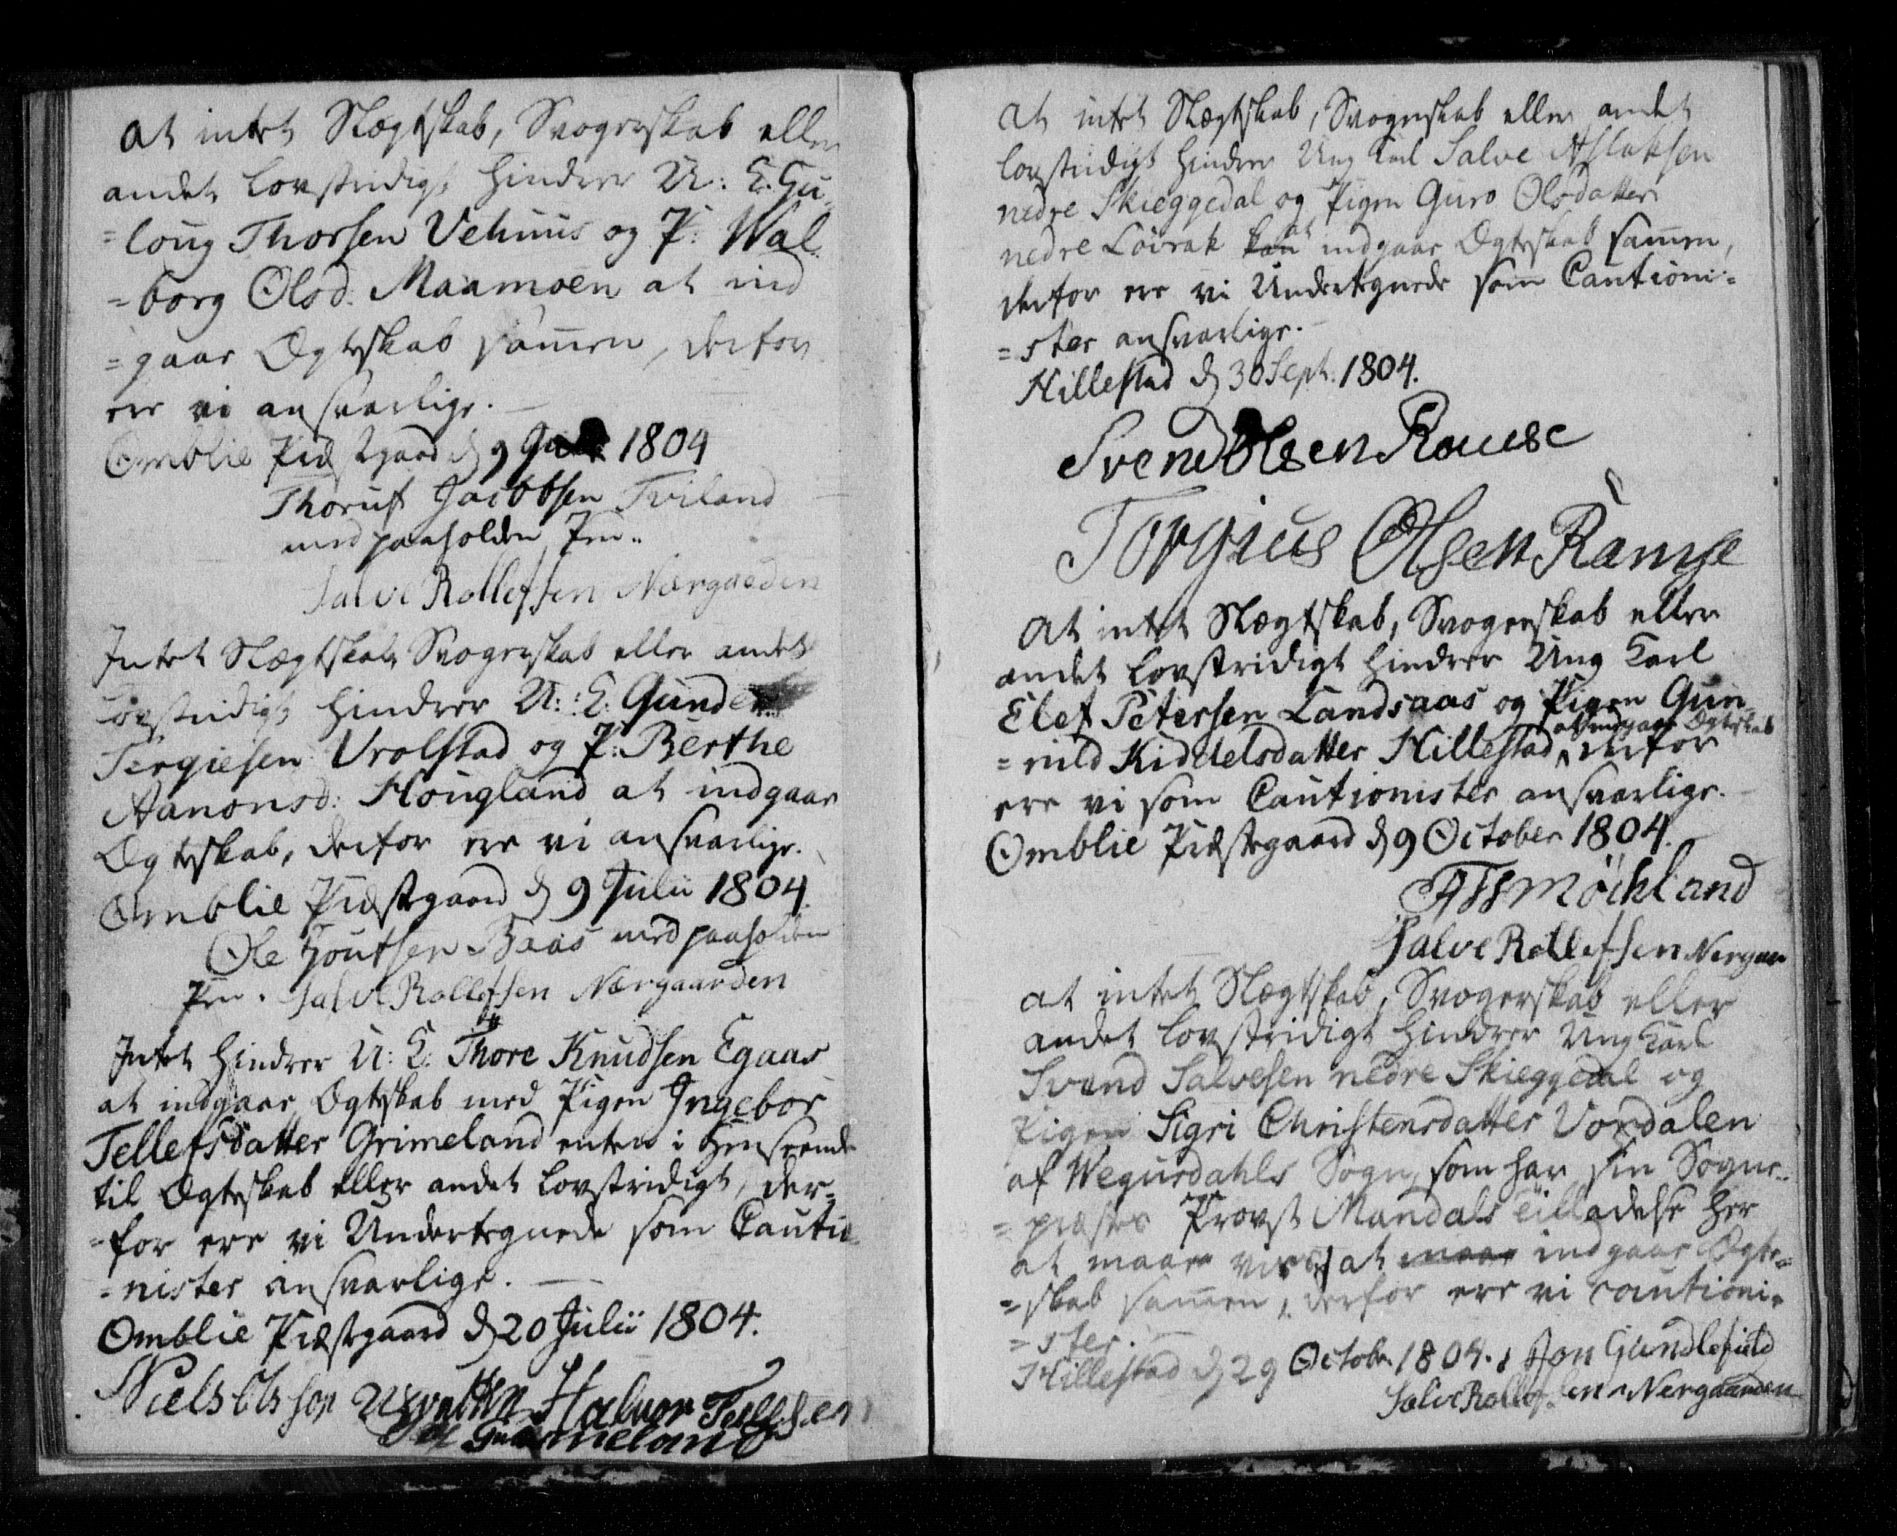 At intet Slægtskab, Svogerskab eller
andet lovstridigt hindrer U: K: Gu-
=loug Thorsen Vehuus og P: Wal-
=borg Olsd: Maamoen at ind
=gaae Ægteskab sammen, derfor
ere vi ansvarlige.
Omblie Præstgaard d 9 1804
Thorus Jacobsen Tviland
med paaholden Pen..
Salve Rollefsen Nærgaarden
Intet Slægtskab, Svogerskab eller andet
Lovstridigt hindrer U: K: Gunder
Tergiesen Vrolstad og P: Berthe
Aanonsd: Hougland at indgaae
Ægteskab, derfor ere vi ansvarlige.
Omblie Præstgaard d 9 Julii 1804.
Ole Goutsen Baas med paaholden
Pen. Salve Rollefsen Nærgaarden
Intet hindrer U: K: Thore Knudsen Egaas
at indgaae Ægteskab med Pigen Ingebor
Tellefsdatter Grimeland enten i Henseende
til Ægteskab eller andet lovstridigt, der-
=for ere vi Undertegnede som Cautio-
=nister ansvarlige.
Omblie Præstgaard d 20 Julii 1804.
Niels Halvor Tellefsen
Grimeland
At intet Slægtskab, Svogerskab eller andet
lovstridigt hindrer Ung Karl Salve Aslaksen
nedre Skieggedal og Pigen Guro Olsdatter
nedre Løvrak at indgaae Ægteskab sammen,
derfor ere vi Undertegnede som Cautioni-
=ster ansvarlige.
Hillestad d 30 Sept. 1804.
Svend Olsen Rause
Torgius Olsen Ramse
At intet Slægtskab, Svogerskab eller
andet lovstridigt hindrer Ung Karl
Elef Petersen Landsaas og Pigen Gun-
=nild Kiddelsdatter Hillestad at indgaae Ægteskab, derfor
ere vi som Cautionister ansvarlige.
Omblie Præstegaard d 9 October 1804.
Salve Rollefsen Nergaar
At intet Slægtskab, Svogerskab eller
andet lovstridigt hindrer Ung Karl
Svend Salvesen nedre Skieggedal og
Pigen Sigri Christensdatter Vordalen
af Wegusdahls Sogn, som har sin Sogne-
=præstes Provst Mandals Tilladelse her
at maae vies, at maae indgaae Ægte-
=skab sammen, derfor ere vi cautioni-
=ster.
Hillestad d 29 Octobr. 1804. Jon
Salve Rollefsen Nergaarden